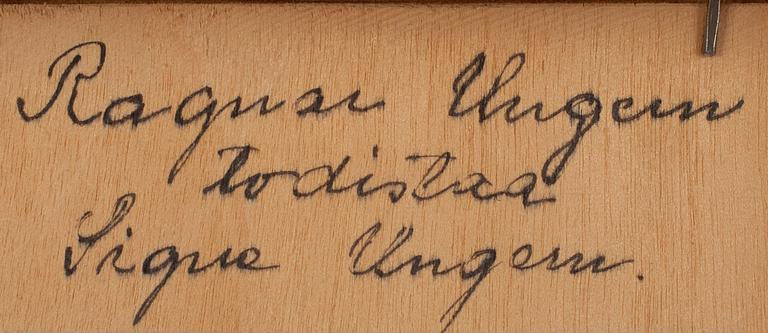 Ragnar Ungern
todistaa
Signe Ungern.